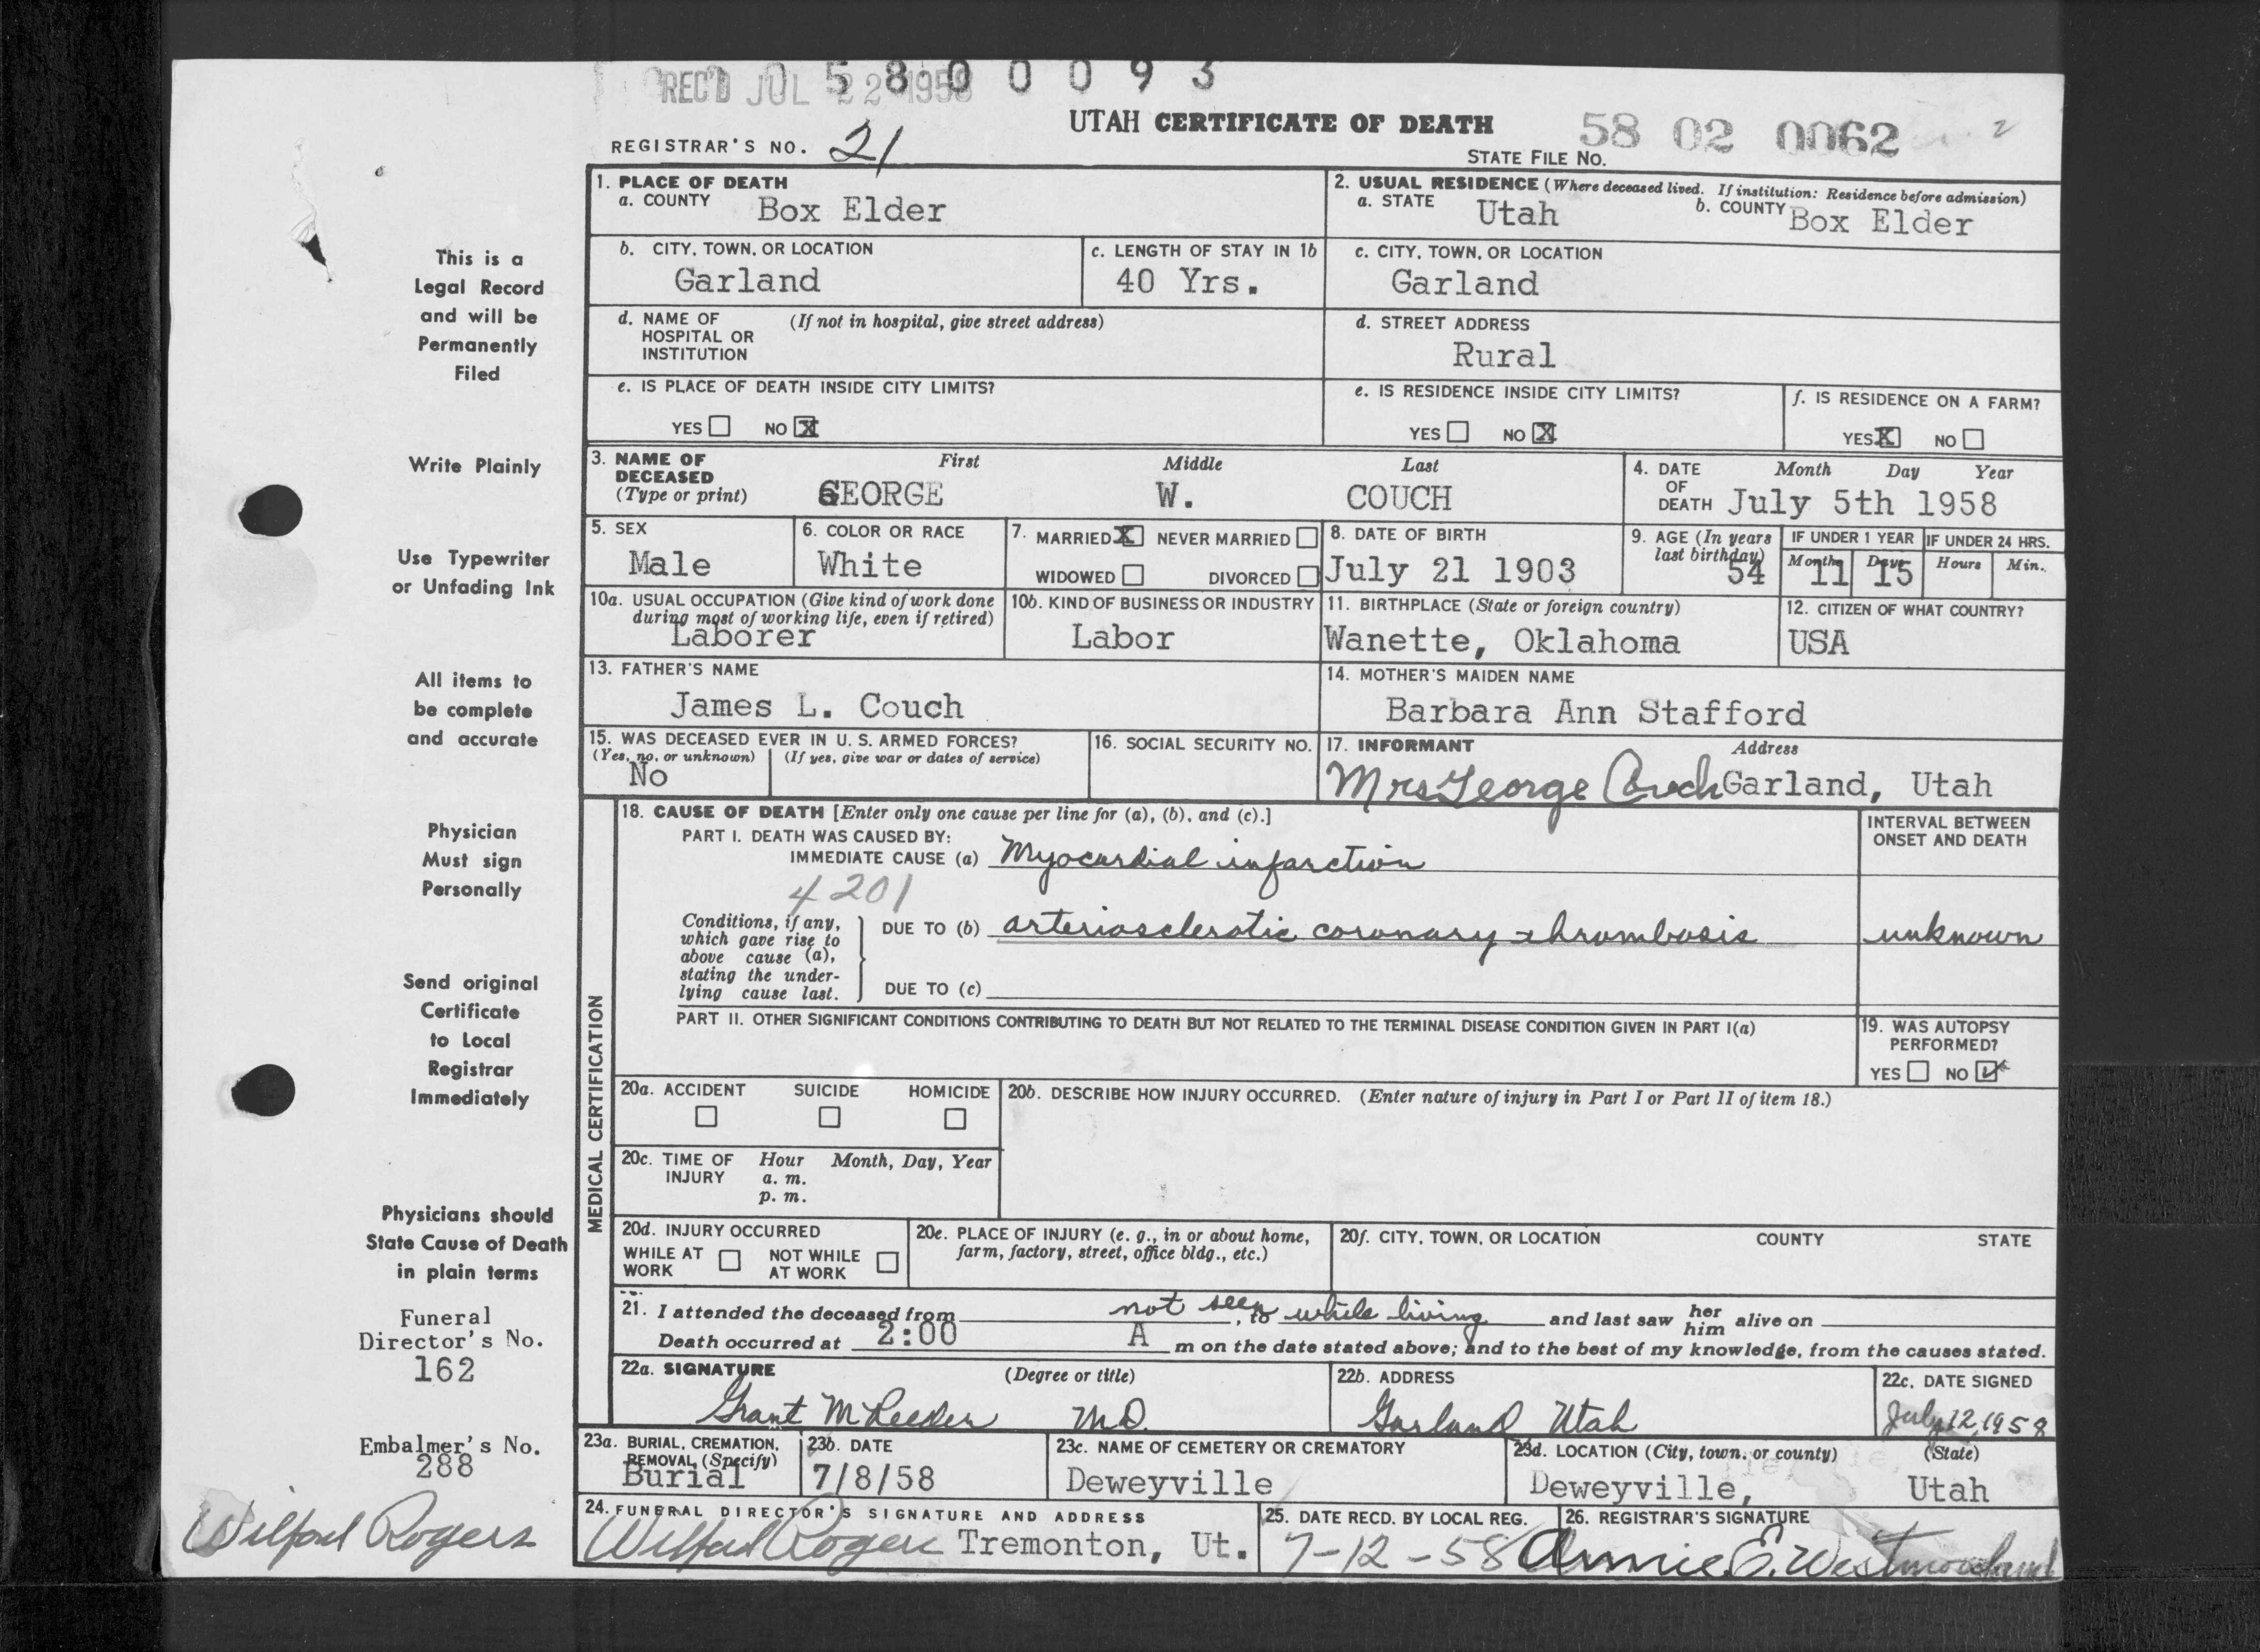 REC'D JUL 22 1958
5 8 0 0 0 9 3
UTAH CERTIFICATE OF DEATH
58 02 0062
REGISTRAR'S NO. 21
STATE FILE NO.
1. PLACE OF DEATH
a. COUNTY Box Elder
2. USUAL RESIDENCE (Where deceased lived. If institution: Residence before admission)
a. STATE Utah b. COUNTY Box Elder
b. CITY, TOWN, OR LOCATION
Garland
c. LENGTH OF STAY IN 1b
40 Yrs.
c. CITY, TOWN, OR LOCATION
Garland
d. NAME OF HOSPITAL OR INSTITUTION (If not in hospital, give street address)
d. STREET ADDRESS
Rural
e. IS PLACE OF DEATH INSIDE CITY LIMITS?
YES NO X
e. IS RESIDENCE INSIDE CITY LIMITS?
YES NO X
f. IS RESIDENCE ON A FARM?
YES X NO
3. NAME OF DECEASED (Type or print)
First Middle Last
GEORGE W. COUCH
4. DATE OF DEATH Month Day Year
July 5th 1958
5. SEX
Male
6. COLOR OR RACE
White
7. MARRIED X NEVER MARRIED
WIDOWED DIVORCED
8. DATE OF BIRTH
July 21 1903
9. AGE (In years last birthday)
54
IF UNDER 1 YEAR
Months Days
11 15
IF UNDER 24 HRS.
Hours Min.
10a. USUAL OCCUPATION (Give kind of work done during most of working life, even if retired)
Laborer
10b. KIND OF BUSINESS OR INDUSTRY
Labor
11. BIRTHPLACE (State or foreign country)
Wanette, Oklahoma
12. CITIZEN OF WHAT COUNTRY?
USA
13. FATHER'S NAME
James L. Couch
14. MOTHER'S MAIDEN NAME
Barbara Ann Stafford
15. WAS DECEASED EVER IN U. S. ARMED FORCES?
(Yes, no, or unknown) (If yes, give war or dates of service)
No
16. SOCIAL SECURITY NO.
17. INFORMANT Address
Mrs George Couch Garland, Utah
MEDICAL CERTIFICATION
18. CAUSE OF DEATH [Enter only one cause per line for (a), (b), and (c).]
PART I. DEATH WAS CAUSED BY:
IMMEDIATE CAUSE (a) Myocardial infarction
INTERVAL BETWEEN ONSET AND DEATH
4201
Conditions, if any, which gave rise to above cause (a), stating the underlying cause last.
DUE TO (b) arteriosclerotic coronary thrombosis unknown
DUE TO (c)
PART II. OTHER SIGNIFICANT CONDITIONS CONTRIBUTING TO DEATH BUT NOT RELATED TO THE TERMINAL DISEASE CONDITION GIVEN IN PART I(a)
19. WAS AUTOPSY PERFORMED?
YES NO ✓
20a. ACCIDENT SUICIDE HOMICIDE
20b. DESCRIBE HOW INJURY OCCURRED. (Enter nature of injury in Part I or Part II of item 18.)
20c. TIME OF INJURY Hour Month, Day, Year
a. m.
p. m.
20d. INJURY OCCURRED
WHILE AT WORK NOT WHILE AT WORK
20e. PLACE OF INJURY (e. g., in or about home, farm, factory, street, office bldg., etc.)
20f. CITY, TOWN, OR LOCATION COUNTY STATE
21. I attended the deceased from not seen, to while living and last saw her him alive on
Death occurred at 2:00 A m on the date stated above; and to the best of my knowledge, from the causes stated.
22a. SIGNATURE (Degree or title)
Grant M Reeder MD.
22b. ADDRESS
Garland Utah
22c. DATE SIGNED
July 12, 1958
23a. BURIAL, CREMATION, REMOVAL (Specify)
Burial
23b. DATE
7/8/58
23c. NAME OF CEMETERY OR CREMATORY
Deweyville
23d. LOCATION (City, town, or county) (State)
Deweyville, Utah
24. FUNERAL DIRECTOR'S SIGNATURE AND ADDRESS
Wilford Rogers Tremonton, Ut.
25. DATE RECD. BY LOCAL REG.
7-12-58
26. REGISTRAR'S SIGNATURE
Annie E. Westmoreland
This is a
Legal Record
and will be
Permanently
Filed
Write Plainly
Use Typewriter
or Unfading Ink
All items to
be complete
and accurate
Physician
Must sign
Personally
Send original
Certificate
to Local
Registrar
Immediately
Physicians should
State Cause of Death
in plain terms
Funeral
Director's No.
162
Embalmer's No.
288
Wilford Rogers